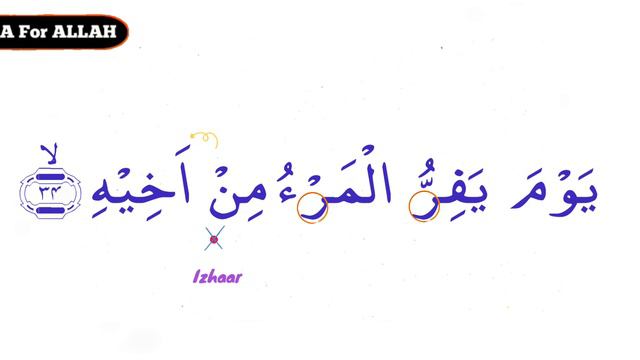 A For ALLAH
يَوْمَ يَفِرُّ الْمَرْءُ مِنْ اَخِيْهِ ۙ ۳۴
Izhaar